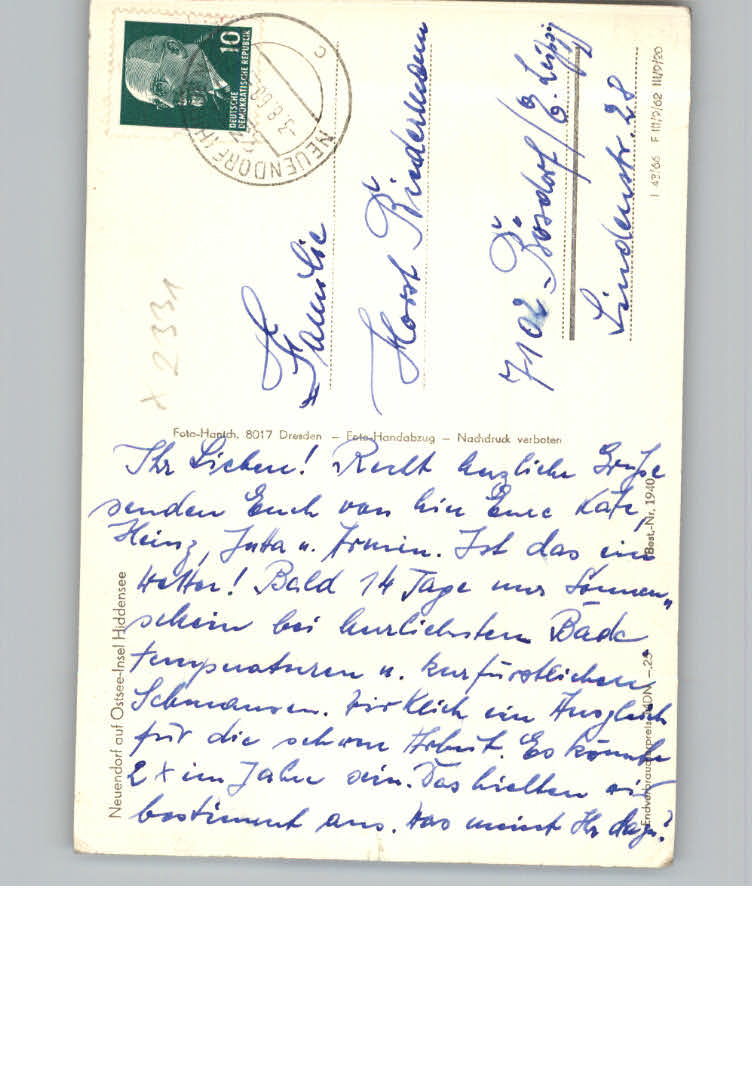 Ihr Lieben! Recht herzliche Grüße
senden Euch von hier Eure Käte,
Heinz, Jutta u. Armin. Ist das ein
Wetter! Bald 14 Tage nur Sonnen„
schein bei herrlichsten Bade
temperaturen u. kurfürstlichem
Schmausen. Wirklich ein Ausgleich
für die schwere Arbeit. Es könnte
2x im Jahr sein. Das hielten wir
bestimmt aus. Was meint Ihr dazu?
Foto-Hanich, 8017 Dresden – Foto-Handabzug – Nachdruck verboten
Neuendorf auf Ostsee-Insel Hiddensee
Best.-Nr. 1940
Endverbraucherpreis MDN -.25
x 2331
DEUTSCHE
DEMOKRATISCHE REPUBLIK
10
NEUENDORF (H
-3.8.
c
Familie
Horst
7102 Bösdorf / b. Leipzig
Lindenstr. 28
I 43/66 F III/9/62 III/9/20